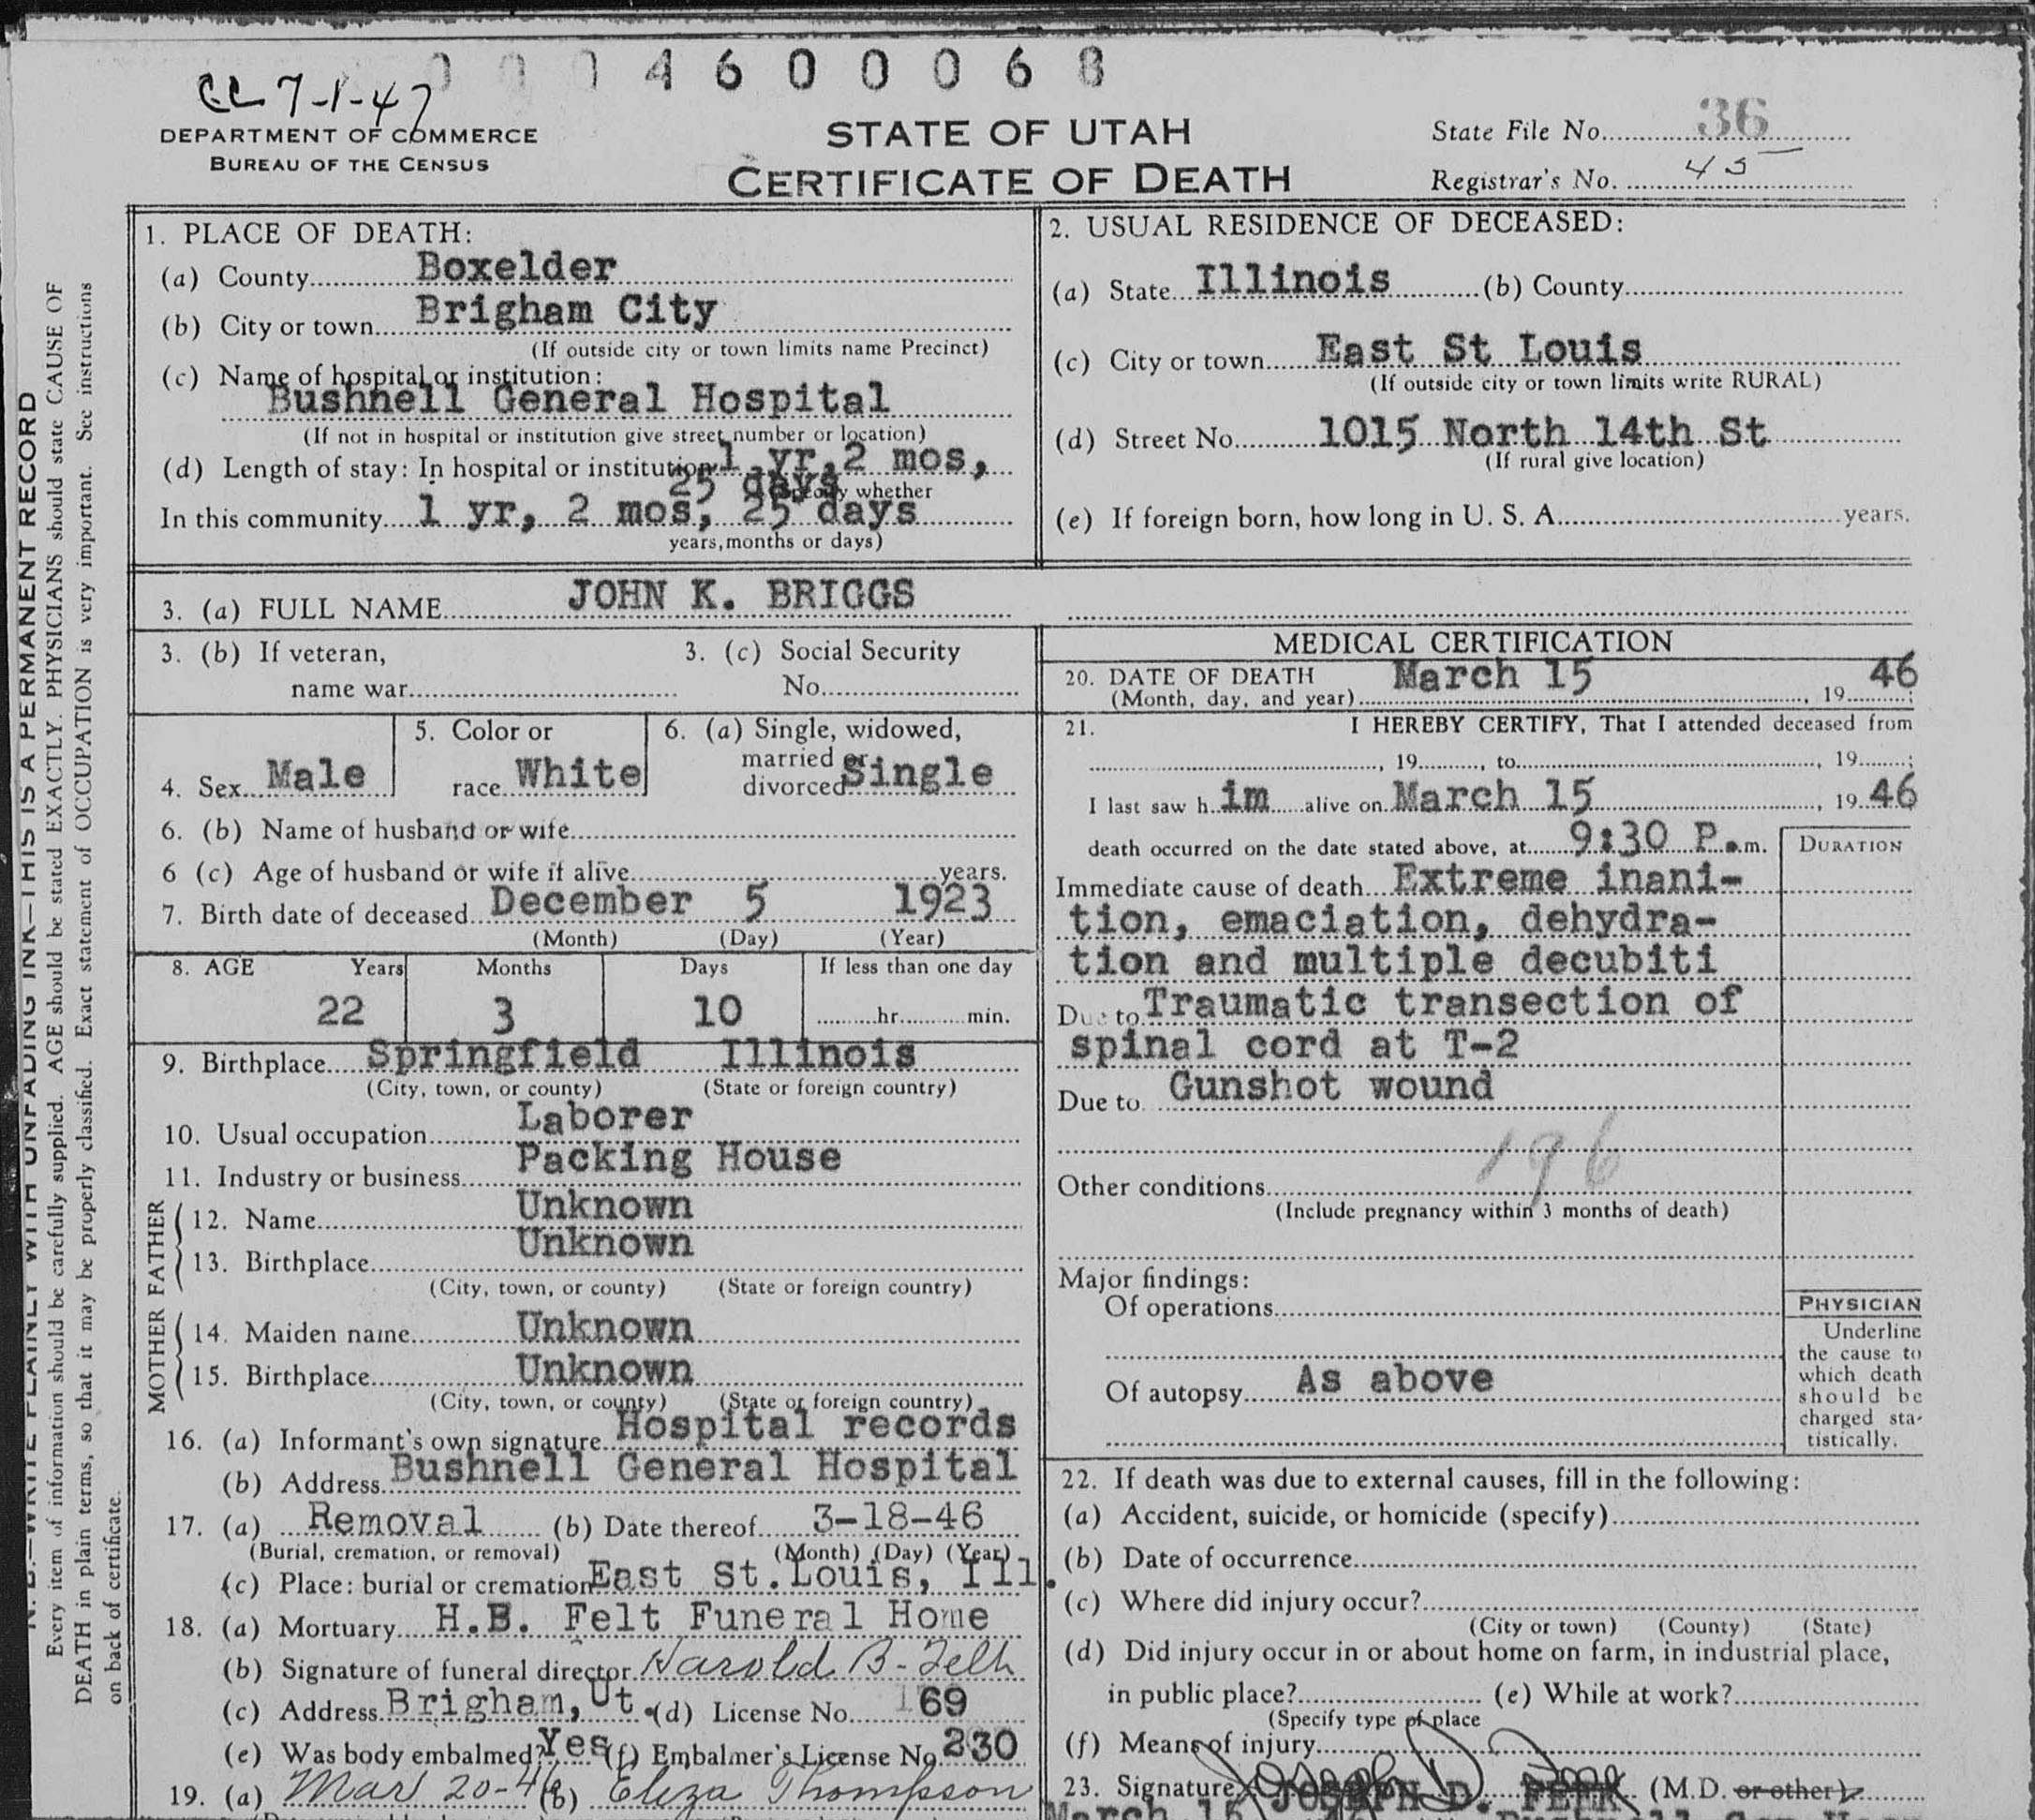 0 0 0 4 6 0 0 0 6 8
CC 7-1-47
DEPARTMENT OF COMMERCE
BUREAU OF THE CENSUS
STATE OF UTAH
CERTIFICATE OF DEATH
State File No. 36
Registrar's No. 45
N. B.—WRITE PLAINLY WITH UNFADING INK—THIS IS A PERMANENT RECORD
Every item of information should be carefully supplied. AGE should be stated EXACTLY. PHYSICIANS should state CAUSE OF
DEATH in plain terms, so that it may be properly classified. Exact statement of OCCUPATION is very important. See instructions
on back of certificate.
1. PLACE OF DEATH:
(a) County Boxelder
(b) City or town Brigham City
(If outside city or town limits name Precinct)
(c) Name of hospital or institution:
Bushnell General Hospital
(If not in hospital or institution give street number or location)
(d) Length of stay: In hospital or institution 1 yr, 2 mos,
25 days
(Specify whether
In this community 1 yr, 2 mos, 25 days
years, months or days)
2. USUAL RESIDENCE OF DECEASED:
(a) State Illinois (b) County
(c) City or town East St Louis
(If outside city or town limits write RURAL)
(d) Street No. 1015 North 14th St
(If rural give location)
(e) If foreign born, how long in U. S. A. years.
3. (a) FULL NAME JOHN K. BRIGGS
3. (b) If veteran,
name war
3. (c) Social Security
No.
4. Sex Male
5. Color or
race White
6. (a) Single, widowed,
married or
divorced Single
6. (b) Name of husband or wife
6 (c) Age of husband or wife if alive years.
7. Birth date of deceased December 5 1923
(Month) (Day) (Year)
8. AGE Years Months Days If less than one day
22 3 10 hr. min.
9. Birthplace Springfield Illinois
(City, town, or county) (State or foreign country)
10. Usual occupation Laborer
11. Industry or business Packing House
FATHER
12. Name Unknown
13. Birthplace Unknown
(City, town, or county) (State or foreign country)
MOTHER
14. Maiden name Unknown
15. Birthplace Unknown
(City, town, or county) (State or foreign country)
16. (a) Informant's own signature Hospital records
(b) Address Bushnell General Hospital
17. (a) Removal (b) Date thereof 3-18-46
(Burial, cremation, or removal) (Month) (Day) (Year)
(c) Place: burial or cremation East St. Louis, Ill.
18. (a) Mortuary H.B. Felt Funeral Home
(b) Signature of funeral director Harold B. Felt
(c) Address Brigham, Ut. (d) License No. 169
(e) Was body embalmed? Yes (f) Embalmer's License No. 230
19. (a) Mar 20-46 (b) Eliza Thompson
MEDICAL CERTIFICATION
20. DATE OF DEATH March 15 46
(Month, day, and year) , 19 ;
21. I HEREBY CERTIFY, That I attended deceased from
, 19 , to , 19 ;
I last saw h im alive on March 15 , 19 46
death occurred on the date stated above, at 9:30 P.m.
DURATION
Immediate cause of death Extreme inani-
tion, emaciation, dehydra-
tion and multiple decubiti
Due to Traumatic transection of
spinal cord at T-2
Due to Gunshot wound
196
Other conditions
(Include pregnancy within 3 months of death)
Major findings:
Of operations
Of autopsy As above
PHYSICIAN
Underline
the cause to
which death
should be
charged sta-
tistically.
22. If death was due to external causes, fill in the following:
(a) Accident, suicide, or homicide (specify)
(b) Date of occurrence
(c) Where did injury occur?
(City or town) (County) (State)
(d) Did injury occur in or about home on farm, in industrial place,
in public place? (e) While at work?
(Specify type of place
(f) Means of injury
23. Signature JOSEPH D. (M.D. or other)
March 15